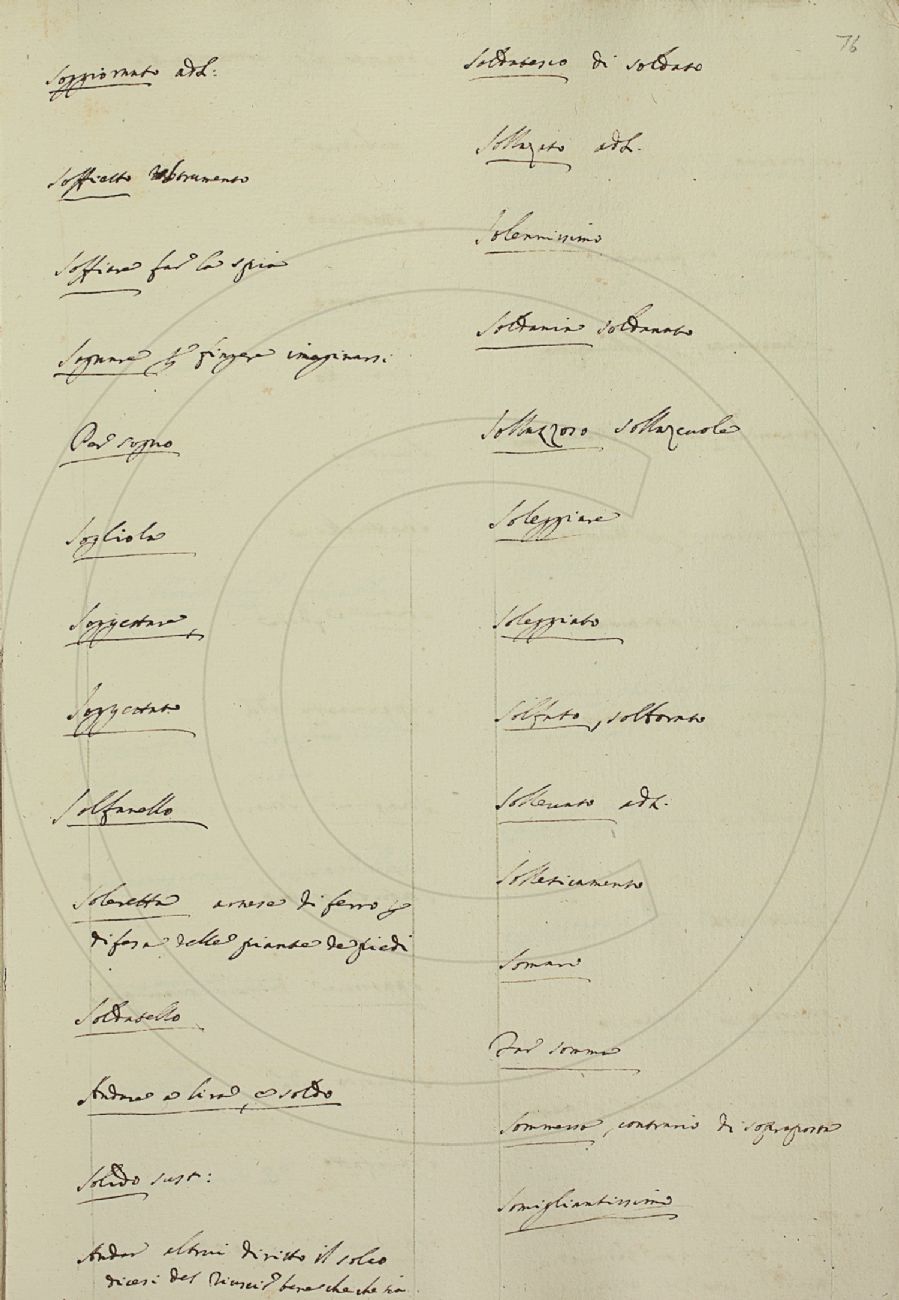 76
Soggiornato add:
Soffietto instrumento
Soffiare far la spia
Sognare p fingere imaginarsi
Per sogno
Sogliola
Soggettare
Soggettato
Solfanello
Soleretta arnese di ferro p
difesa delle piante de piedi
Soldatello
Andare a lira, e soldo
Solido sust:
Andar altrui diritto il solco
dicesi del riuscir bene che che sia
Soldatesco di soldato
Sollazato add.
Solennissimo
Soldania soldanato
Sollazzoso sollazeuole
Soleggiare
Soleggiato
Solfato, solforato
Solleuato add.
Solleticamento
Somaro
Far somma
Sommesso, contrario di sopraposto
Somigliantissimo